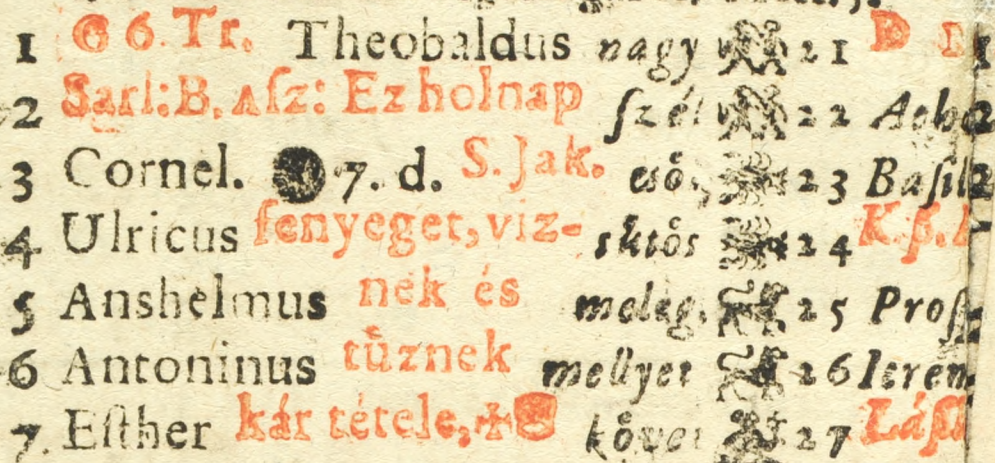 1 G 6. Tr. Theobaldus nagy 21 D
2 Sarl: B. Aſz: Ez holnap ſzél 22
3 Cornel. 7. d. S. Jak. eső, 23 Baſil
4 Ulricus fenyeget, viz- sütős 24 K.
5 Anshelmus nek és meleg. 25 Proſ
6 Antoninus tüznek mellyet 26 Ierem
7. Eſther kár tétele, követ 27 Láſ